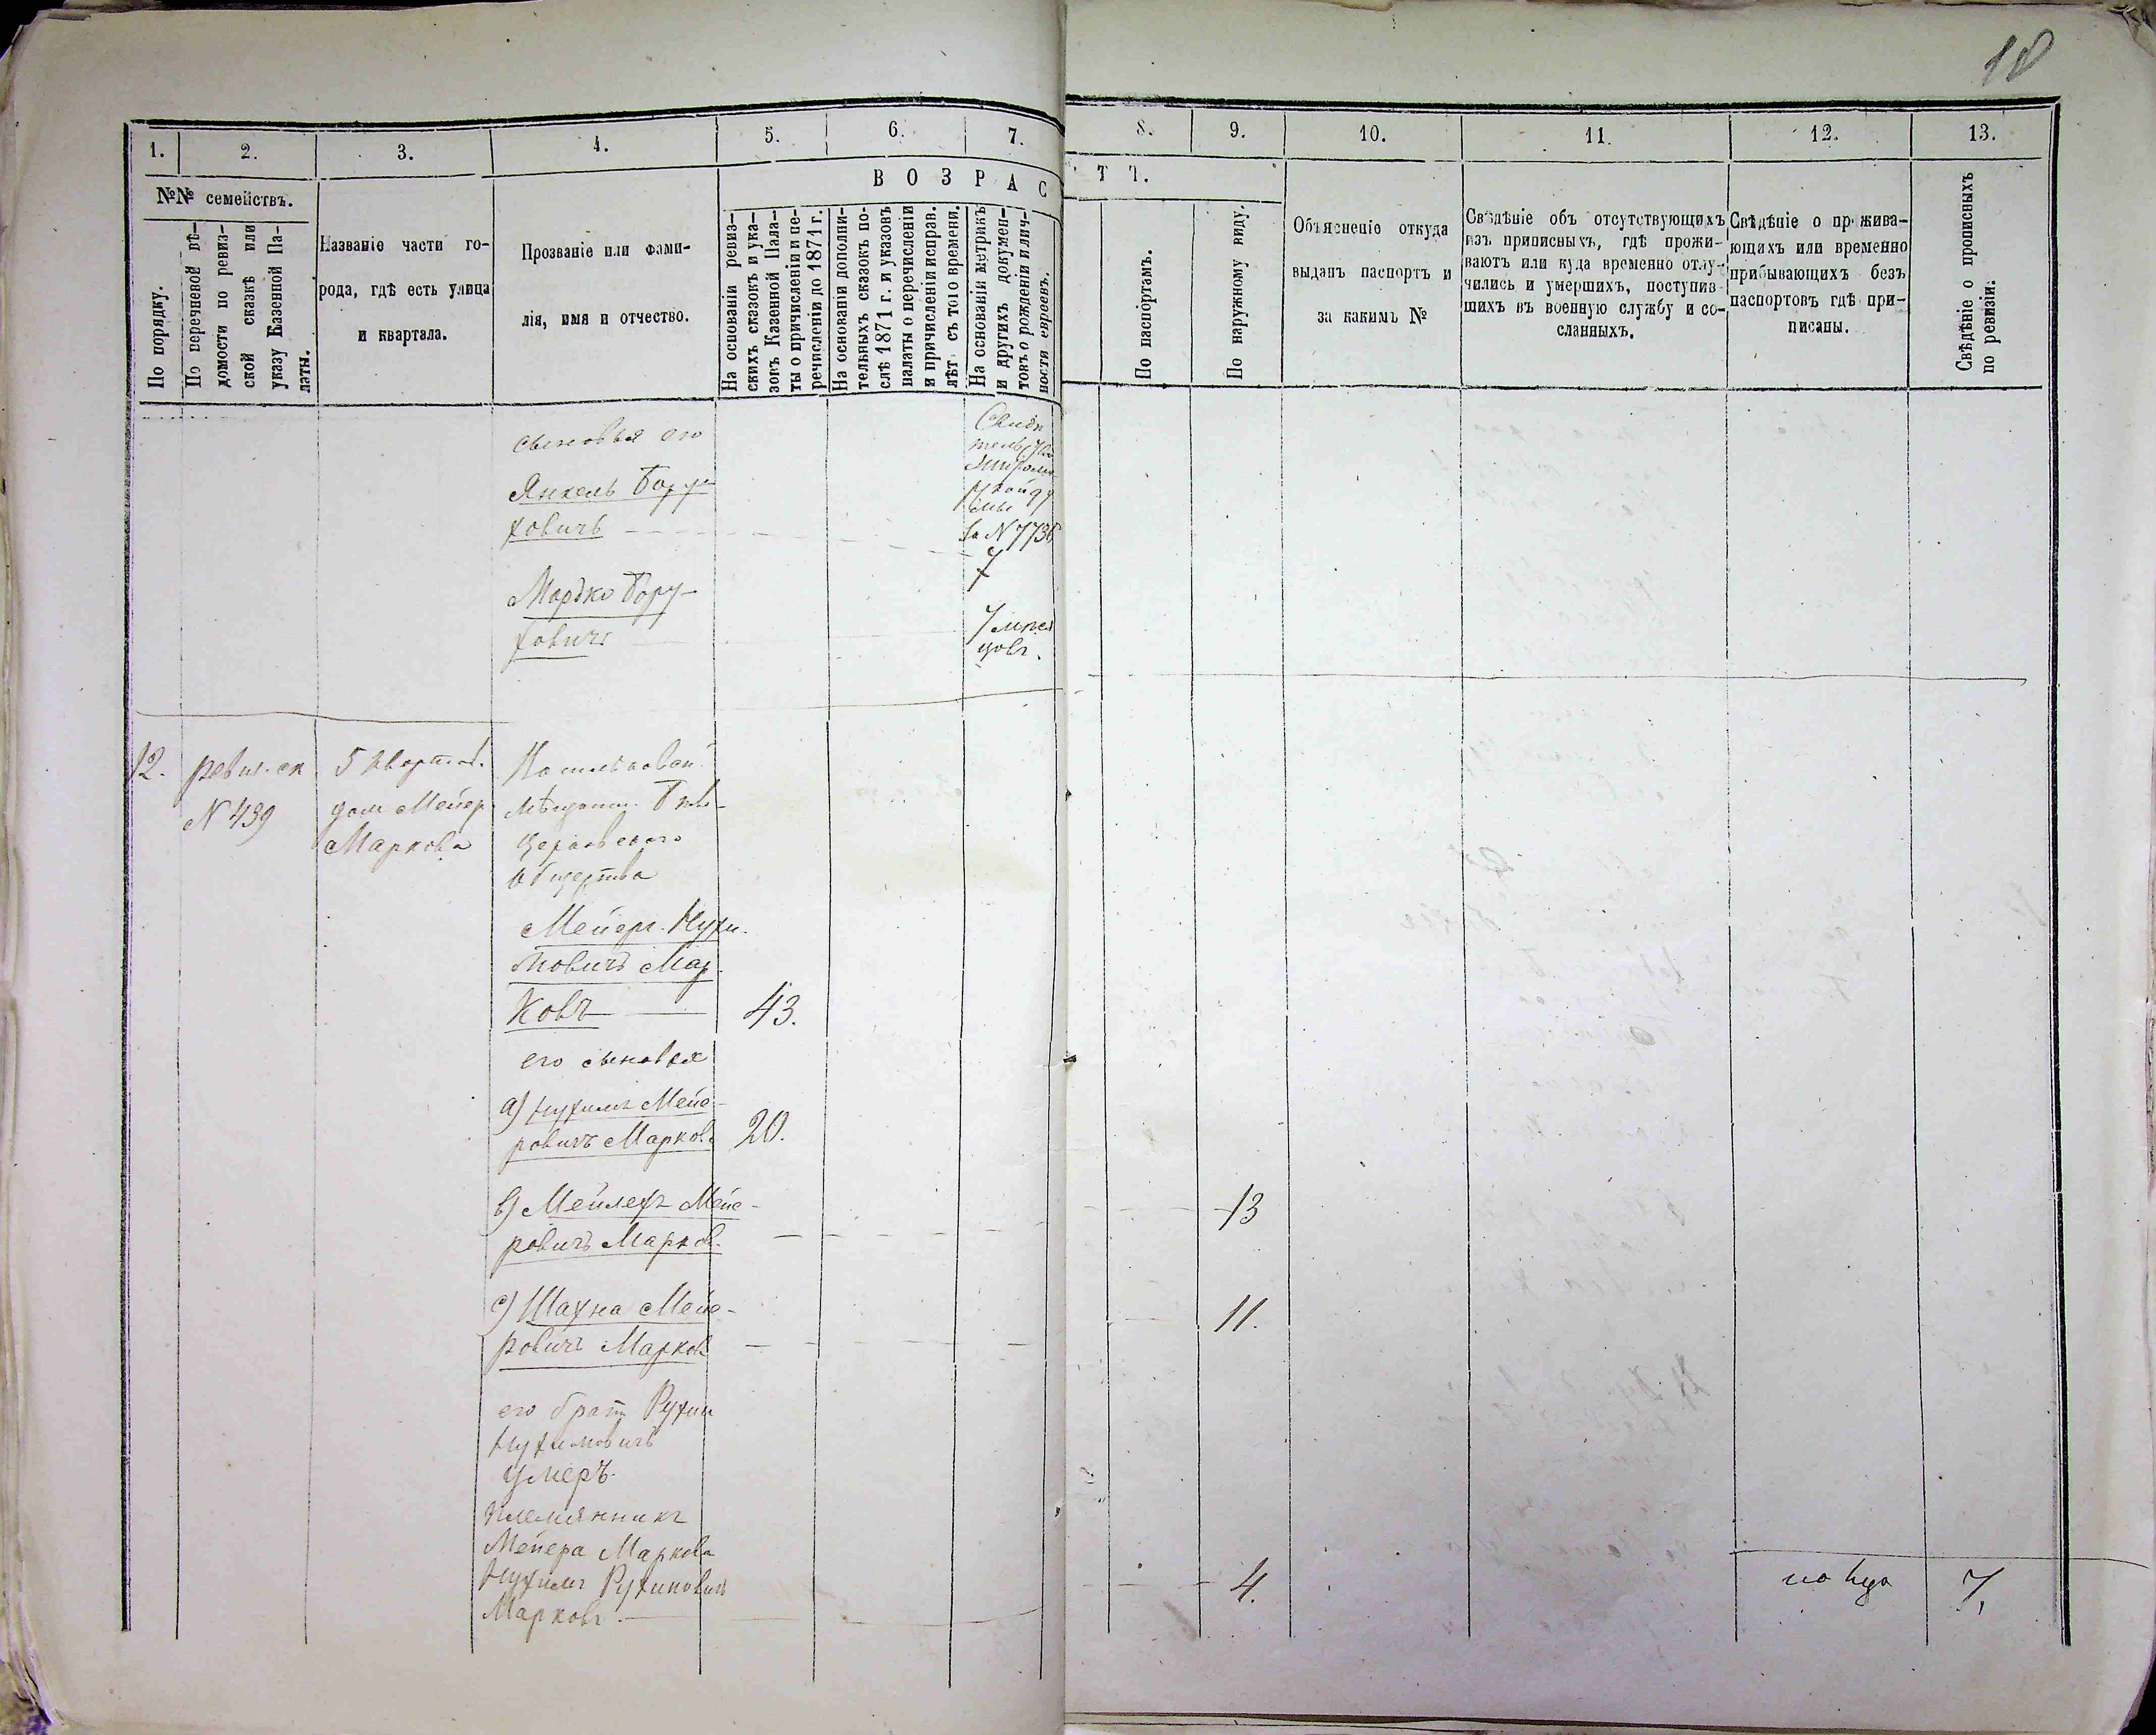 18
1. 2. 3. 4. 5. 6. 7. 8. 9. 10. 11. 12. 13.
№№ семействъ.
По порядку.
По перечневой вѣ-
домости по ревиз-
ской сказкѣ или
указу Казенной Па-
латы.
Названіе части го-
рода, гдѣ есть улица
и квартала.
Прозваніе или фами-
лія, имя и отчество.
ВОЗРАСТЪ.
На основаніи ревиз-
скихъ сказокъ и ука-
зокъ Казенной Пала-
ты о причисленіи и пе-
речисленіи до 1871 г.
На основаніи дополни-
тельныхъ сказокъ по-
слѣ 1871 г. и указовъ
палаты о перечисленіи
и причисленіи исправ.
лѣт съ того времени.
На основаніи метрикъ
и другихъ докумен-
товъ о рожденіи и лич-
ности евреевъ.
По паспортамъ.
По наружному виду.
Объясненіе откуда
выданъ паспортъ и
за какимъ №
Свѣдѣніе объ отсутствующихъ
изъ приписныхъ, гдѣ прожи-
ваютъ или куда временно отлу-
чились и умершихъ, поступив-
шихъ въ военную службу и со-
сланныхъ.
Свѣдѣніе о прожива-
ющихъ или временно
прибывающихъ безъ
паспортовъ гдѣ при-
писаны.
Свѣдѣніе о прописныхъ
по ревизіи.
сыновья его
Янкель Бору-
ховичъ
за N 7736
7
Марко Бору-
ховичъ
7 мѣся
цовъ.
12. ревиз. ск 5 квартал.
N 439 дом Мейер
Маркова
мѣщанин
общества
Мейеръ Нухи-
мовичъ Мар-
ковъ 43.
его сыновья
а) Нухимъ Мейе-
ровичъ Марковъ 20.
в) Мейлехъ Мейе-
ровичъ Марков. 13
с) Шахна Мейе-
ровичъ Марковъ 11.
его братъ Рухин
Нухимовичъ
умеръ.
племянникъ
Мейера Маркова
Нухимъ Рухиновичъ
Марковъ. 4. 7.